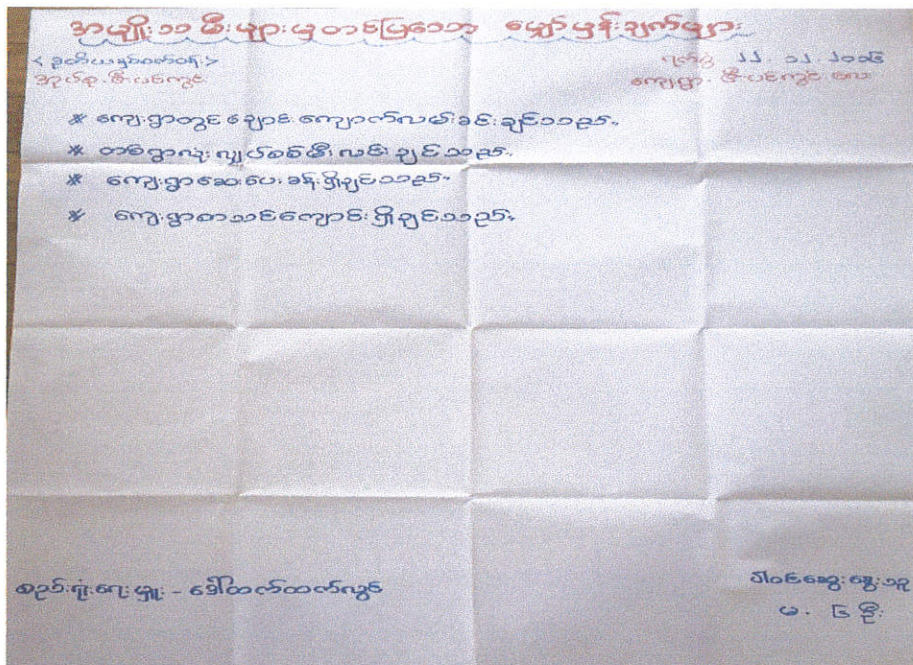 အမျိုးသမီးများမှတစ်ပြသော မျှော်မှန်းချက်များ
<ဒုတိယနှစ်ဝက်ဝန်း> ရက်စွဲ ၂၂.၁၂.၂၀
အုပ်စု. ဇီးပင်ကွင်း ကျေးရွာ. ဇီးပင်ကွင်း လေး
* ကျေးရွာတွင်းချောင်းကျောက်လမ်းခင်းချင်သည်။
* တစ်ရွာလုံးလျှပ်စစ်မီးလင်းချင်သည်။
* ကျေးရွာဆေးပေးခန်းရှိချင်သည်။
* ကျေးရွာစာသင်ကျောင်းရှိချင်သည်။
စည်းရုံးရေးမှူး - ဒေါ်ထက်ထက်လွင် ပါဝင်ဆွေးနွေးသူ
မ - ဦး